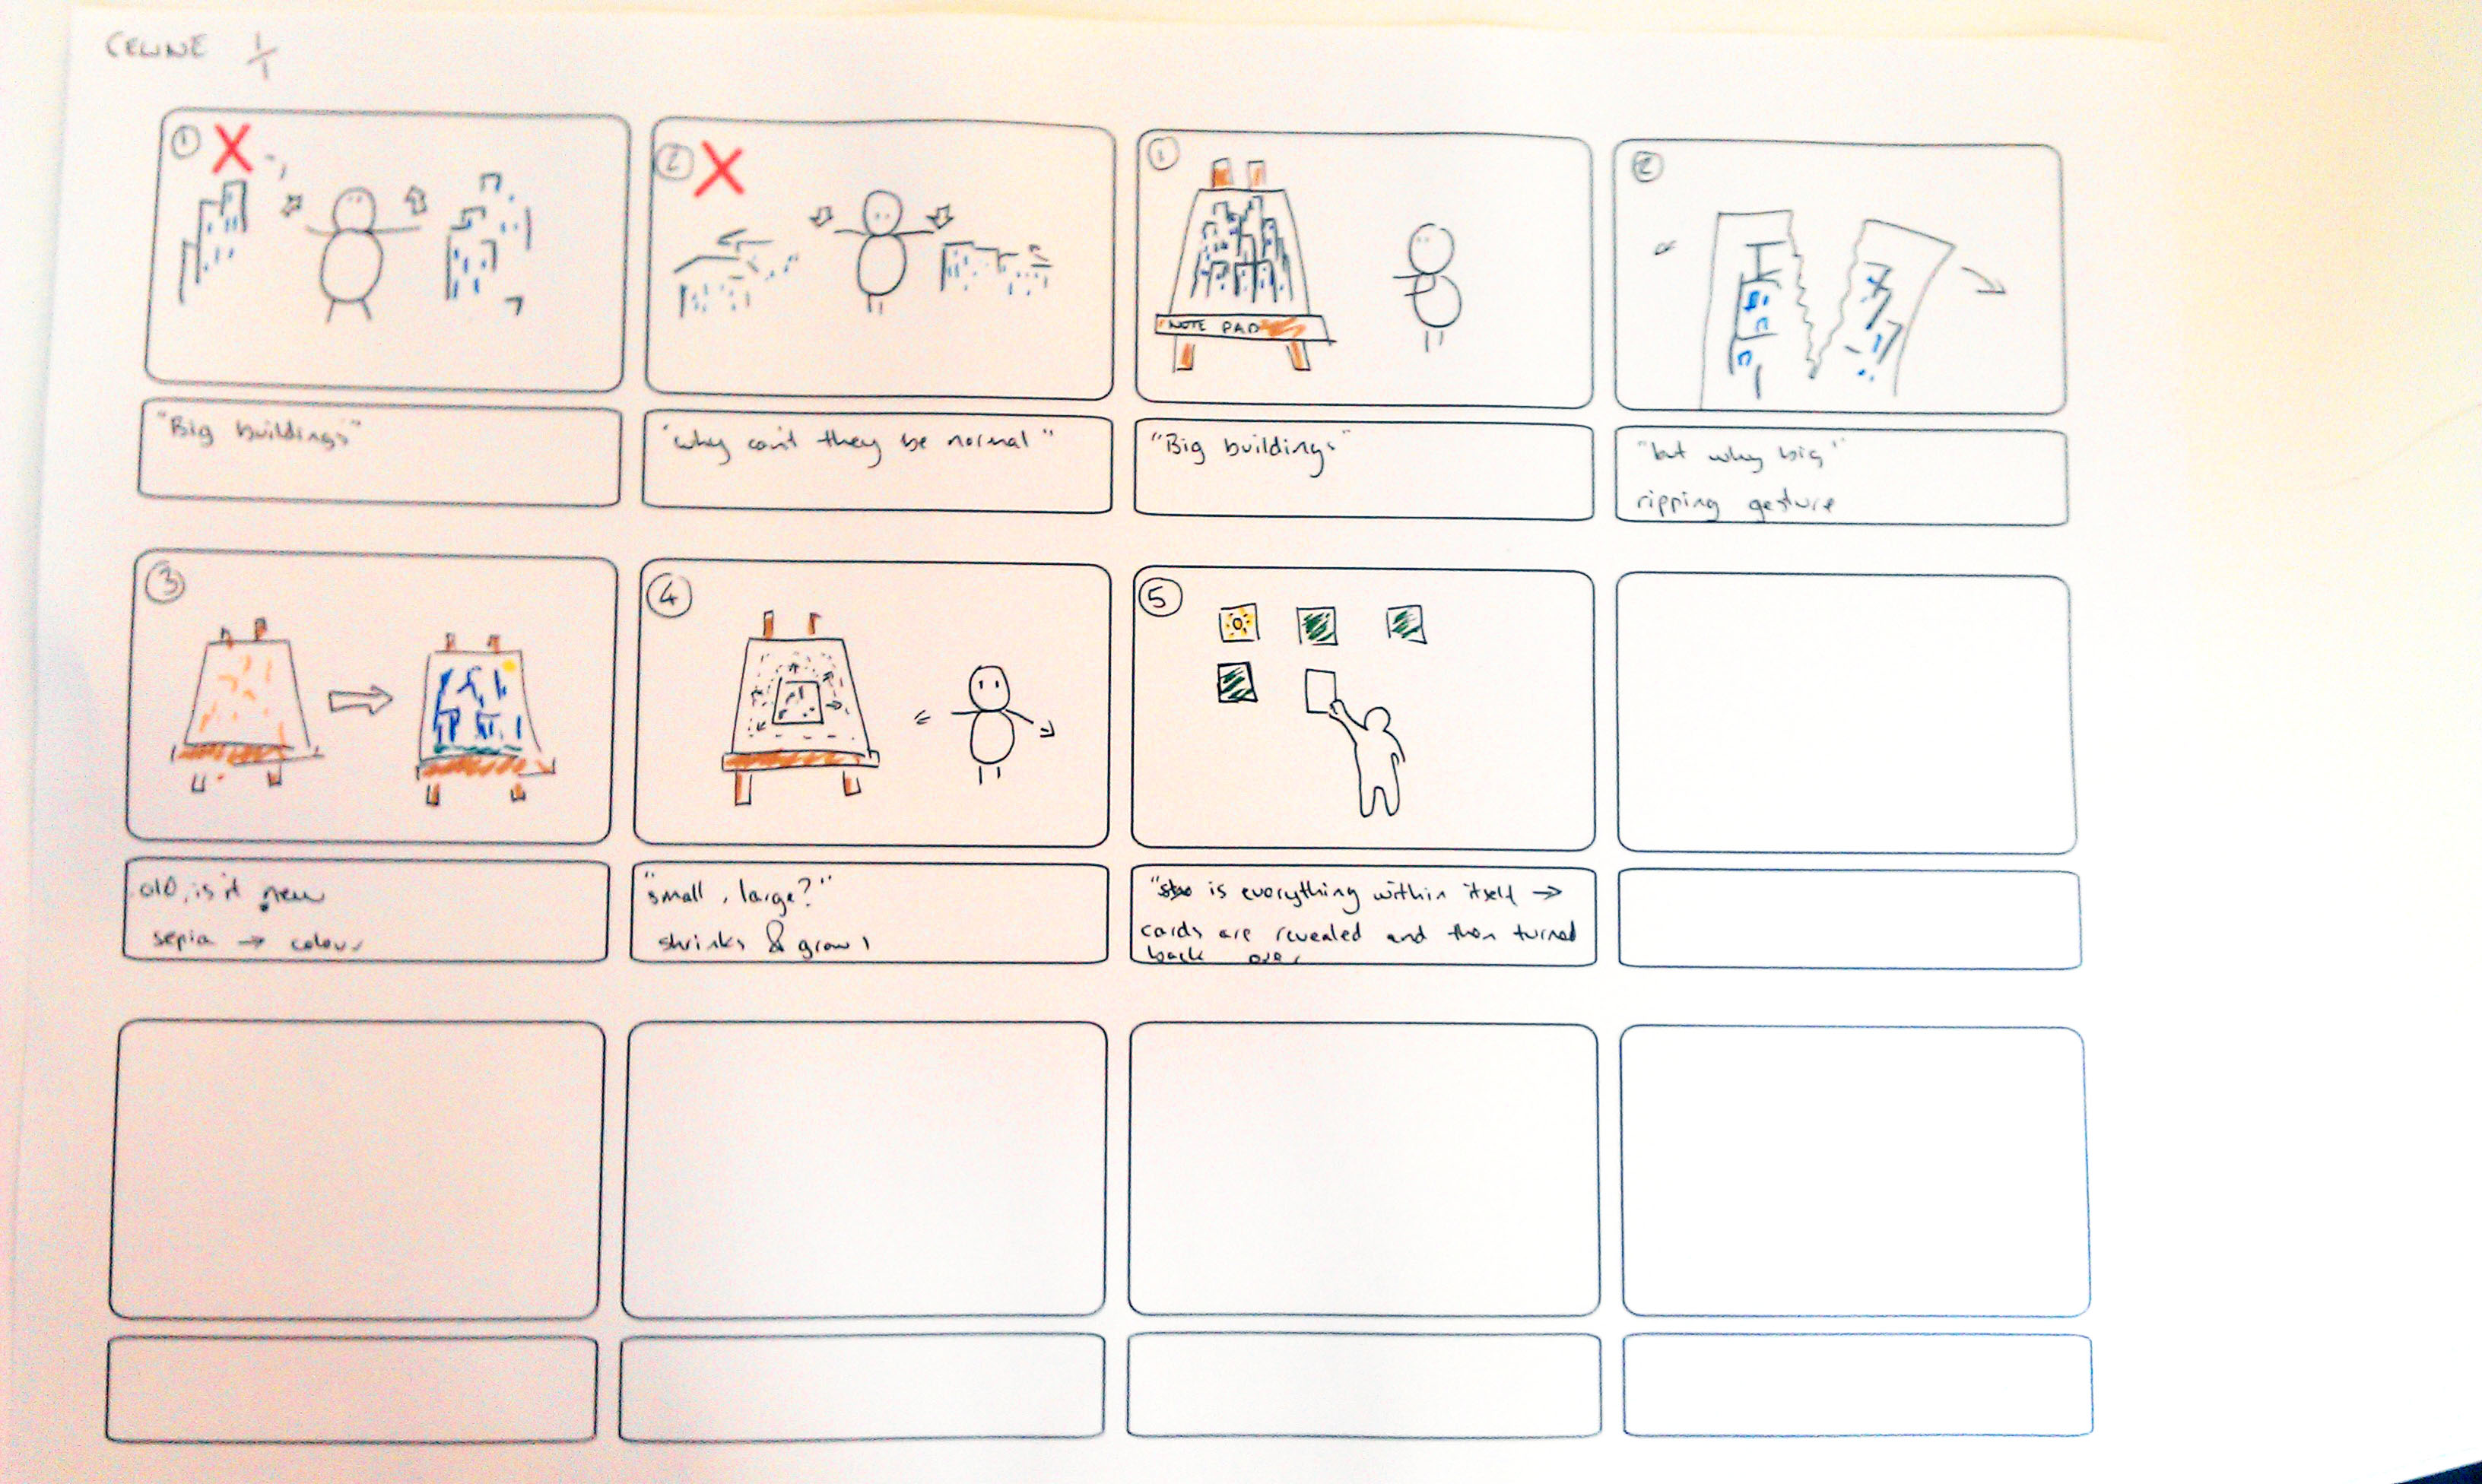 CELINE 1/1
① X
② X
①
②
NOTE PAD
"Big buildings"
"why can't they be normal"
"Big buildings"
"but why big"
ripping gesture
③
④
⑤
old, is it new
sepia → colour
"small, large?"
shrinks & grows
" is everything within itself →
cards are revealed and then turned
back over